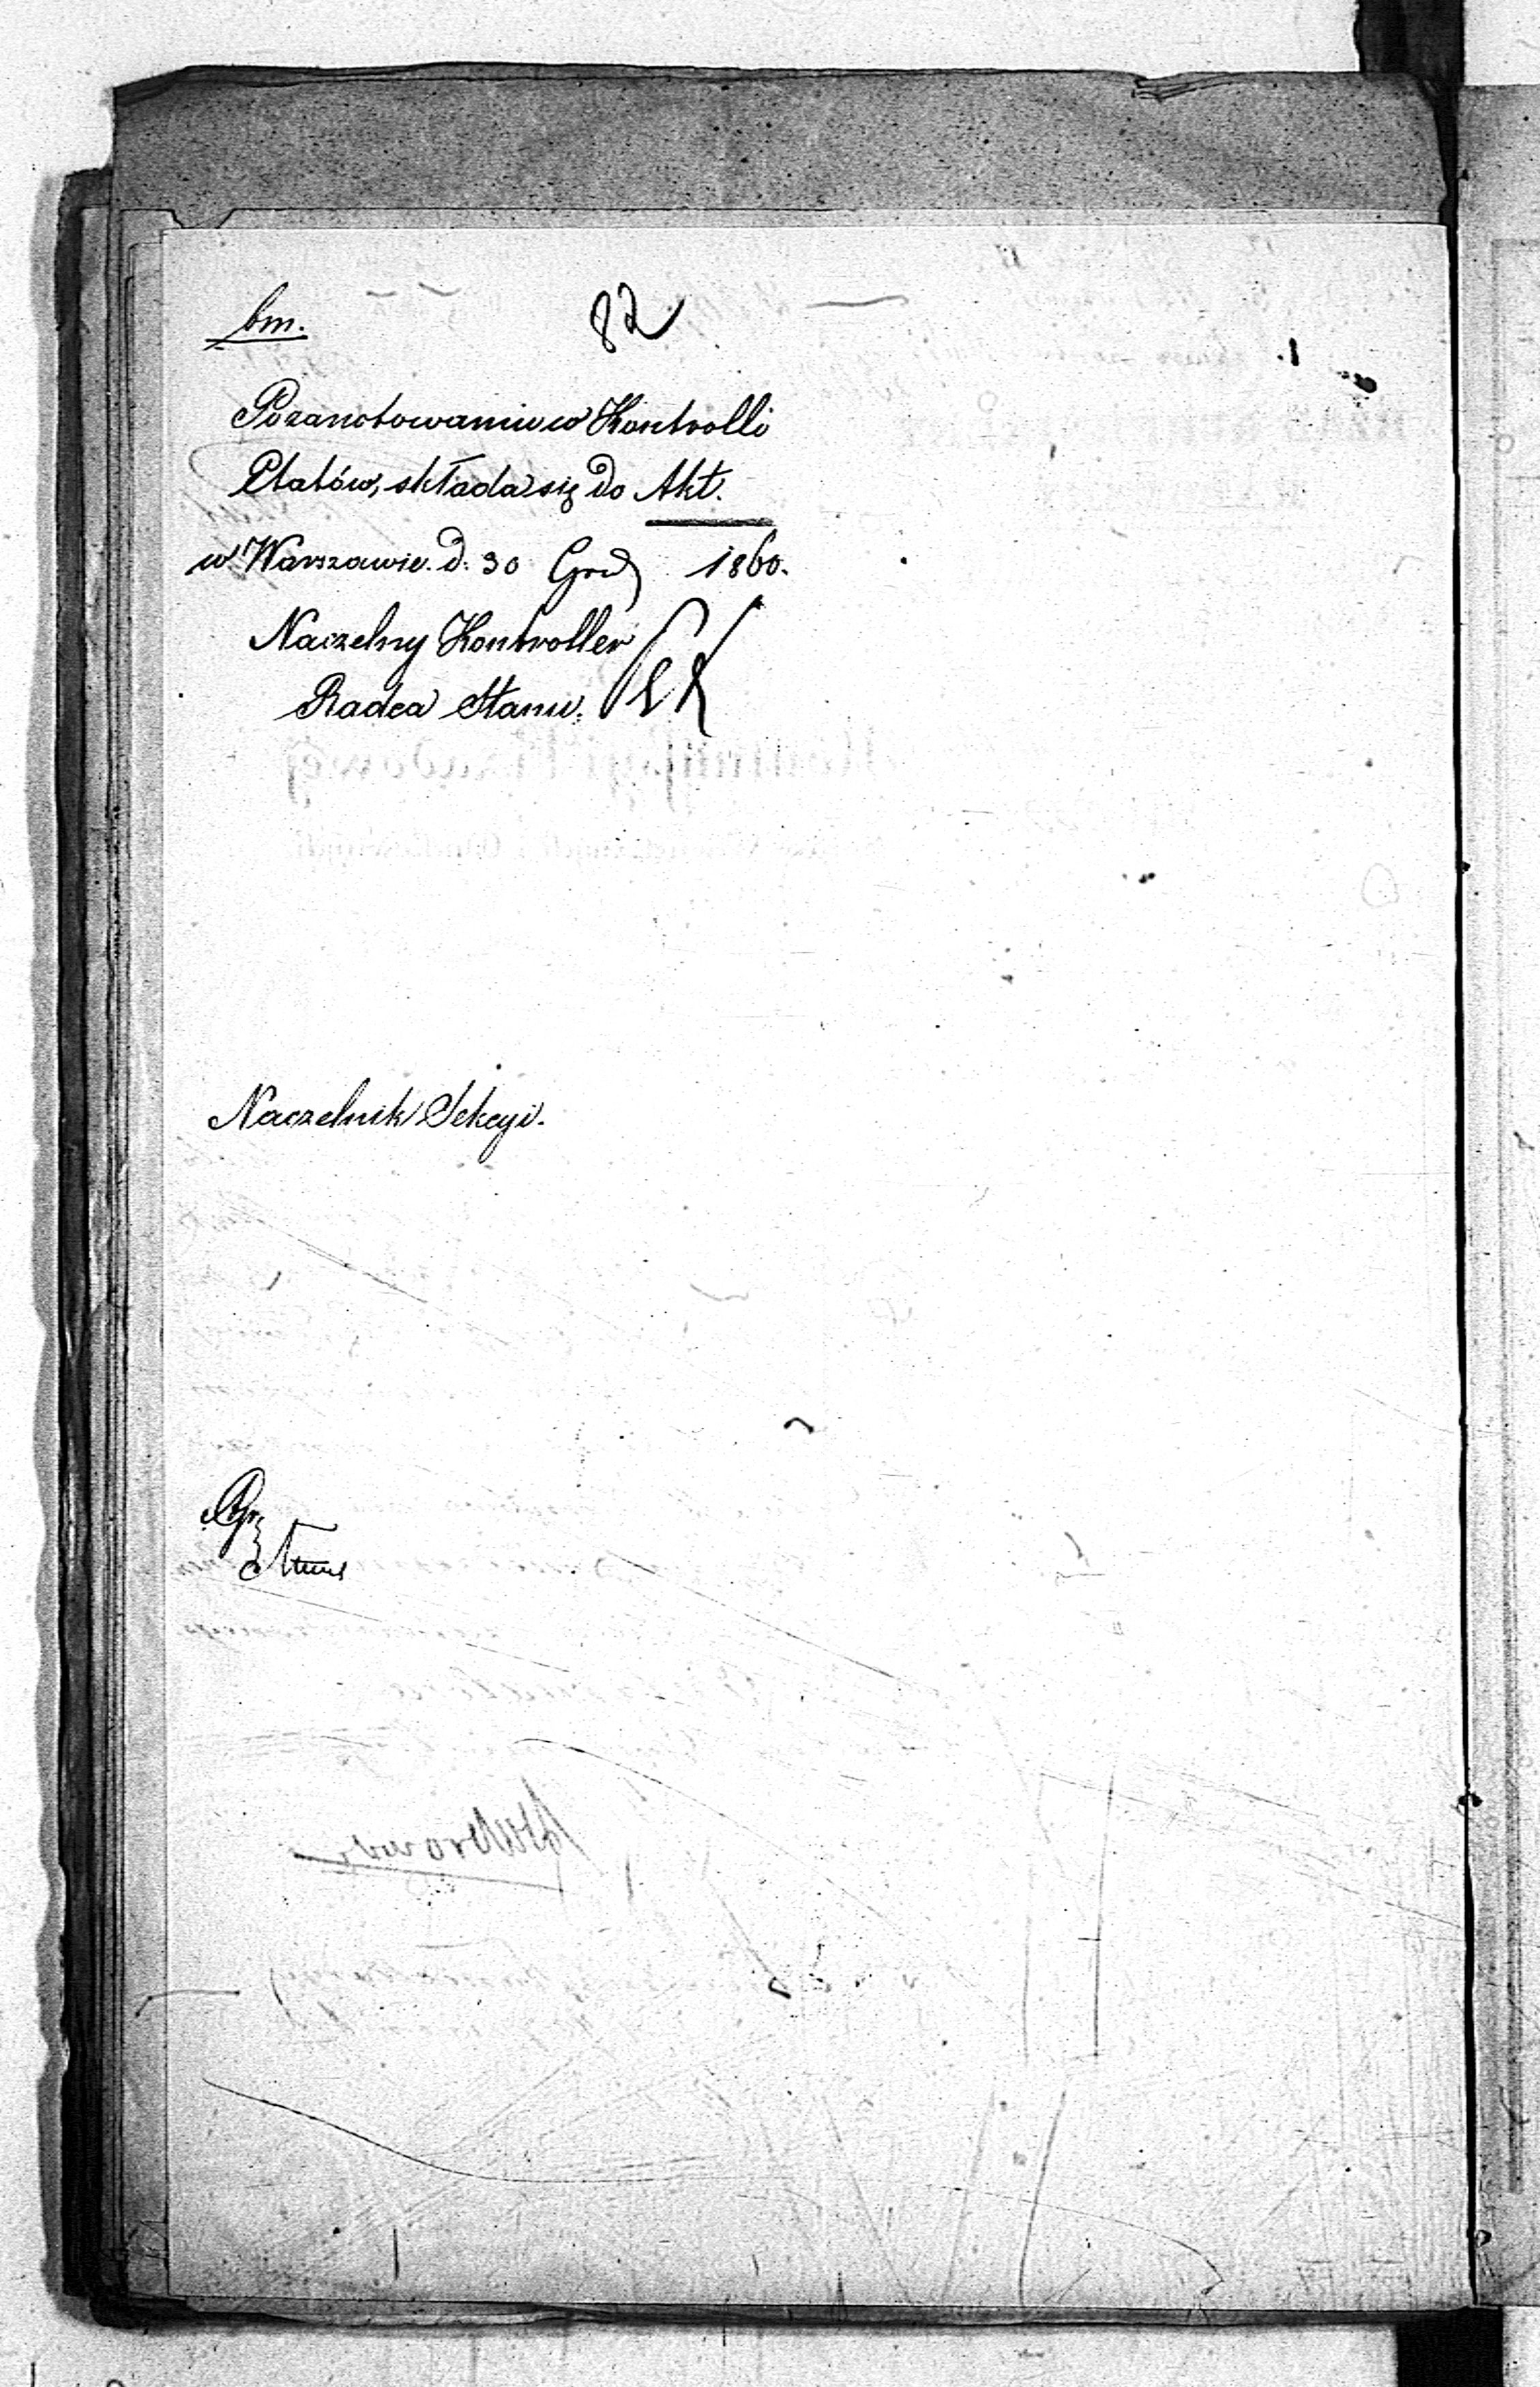 bm.
82
Pozanotowaniu w Kontrolli
Etatów, składa się do Akt.
w Warszawie d. 30 Grud 1860.
Naczelny Kontroller
Radca Stanu.
Naczelnik Sekcyi.